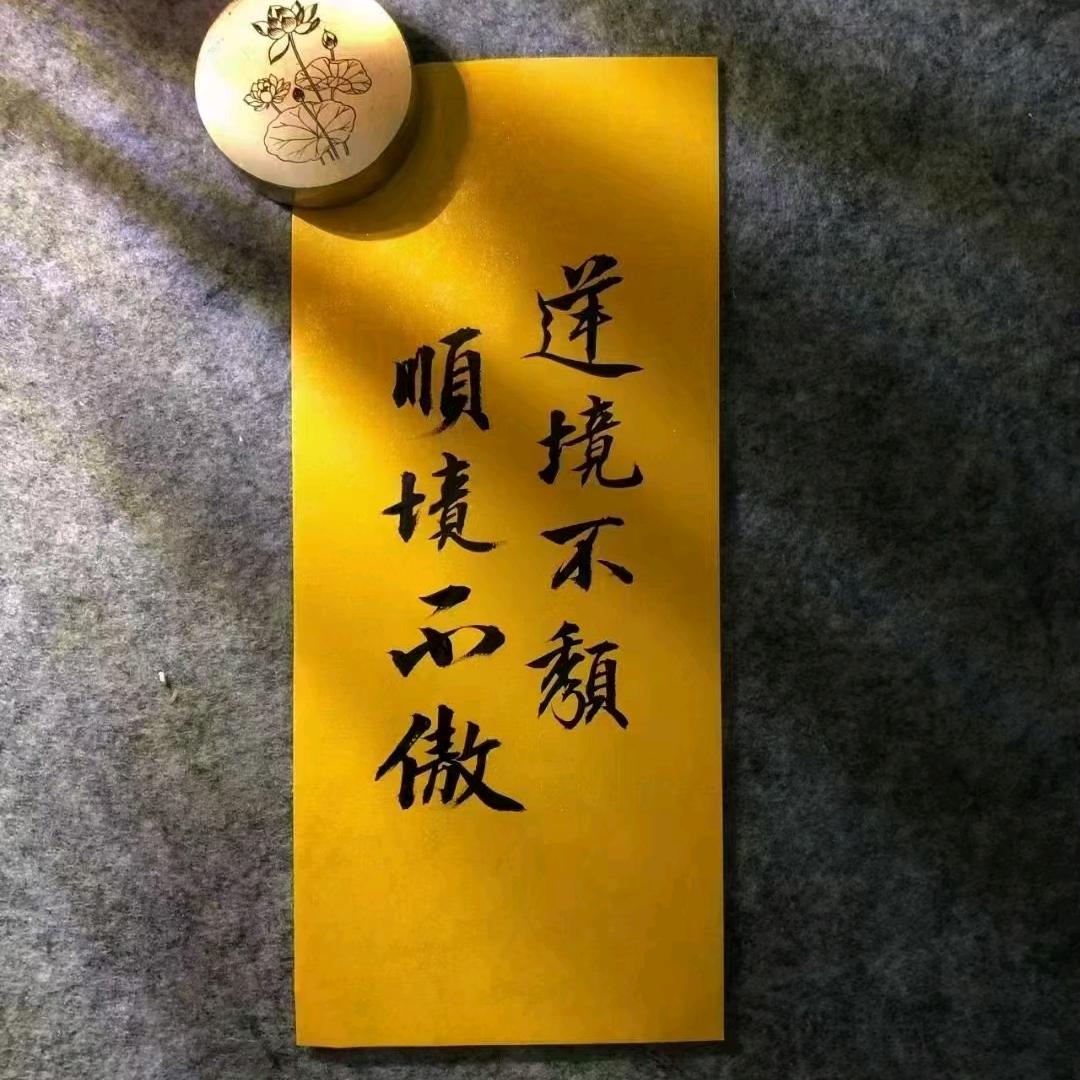 逆境不頹
順境不傲